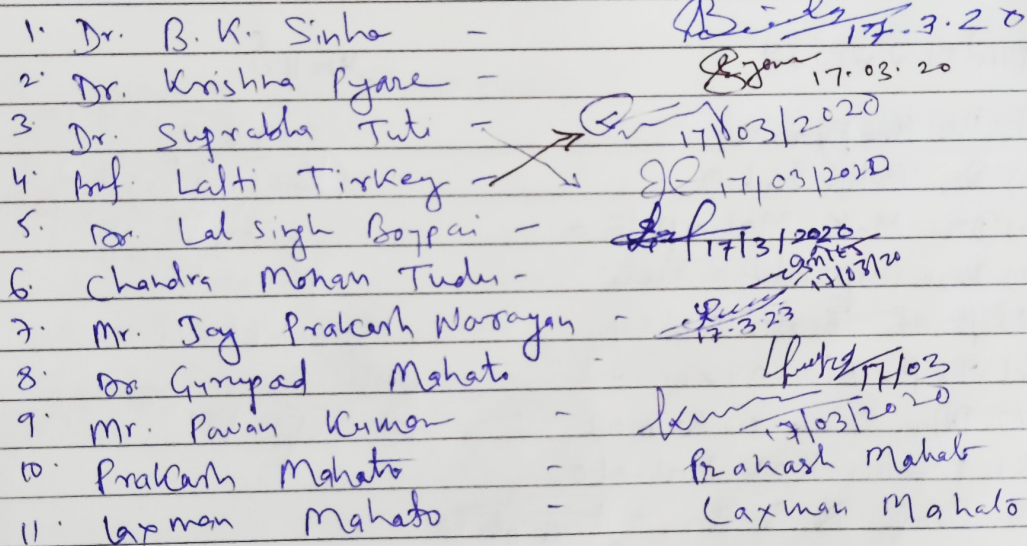 1. Dr. B. K. Sinha - 17.3.20
2. Dr. Krishna Pyare - 17.03.20
3. Dr. Suprabha Tuti - 17/03/2020
4. Prof. Lalti Tirkey - 17/03/2020
5. Dr. Lal Singh Boypai - 17/3/2020
6. Chandra Mohan Tudu - 17/03/20
7. Mr. Jay Prakash Narayan - 17.3.23
8. Dr Gurupad Mahato 17/03
9. Mr. Pavan Kumar - 17/03/2020
10. Prakash Mahato - Prakash Mahato
11. Laxman Mahato - Laxman Mahato